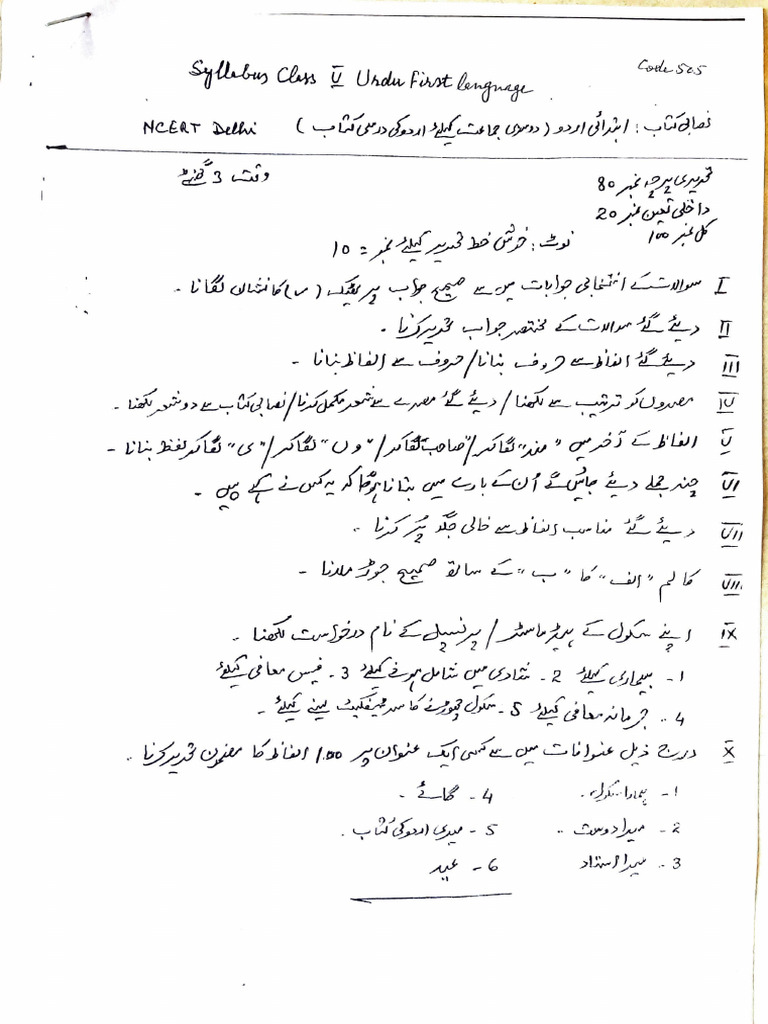 Code 505
Syllabus Class V Urdu First language
نصابی کتاب : ابتدائی اردو ( دوسری جماعت کیلئے اردو کی درسی کتاب ) NCERT Delhi
تحریری پرچہ نمبر 80 وقت 3 گھنٹے
داخلی تعین نمبر 20
کل نمبر 100
نوٹ : خوش خط تحریر کیلئے نمبر = 10
I سوالات کے انتخابی جوابات میں سے صحیح جواب پر ٹِک (✓) کا نشان لگانا ۔
II دیئے گئے سوالات کے مختصر جواب تحریر کرنا ۔
III دیئے گئے الفاظ سے حروف بنانا / حروف سے الفاظ بنانا ۔
IV مصرعوں کو ترتیب سے لکھنا / دیئے گئے مصرعے سے شعر مکمل کرنا / نصابی کتاب سے دو شعر لکھنا ۔
V الفاظ کے آخر میں "مند" لگا کر / "صاحب" لگا کر / "وں" لگا کر / "ی" لگا کر لفظ بنانا ۔
VI چند جملے دیئے جائیں گے اُن کے بارے میں بتانا ہوگا کہ یہ کس نے کہے ہیں ۔
VII دیئے گئے مناسب الفاظ سے خالی جگہ پُر کرنا ۔
VIII کالم "الف" کا "ب" کے ساتھ صحیح جوڑ ملانا ۔
IX اپنے سکول کے ہیڈ ماسٹر / پرنسپل کے نام درخواست لکھنا ۔
1۔ بیماری کیلئے 2۔ شادی میں شامل ہونے کیلئے 3۔ فیس معافی کیلئے
4۔ جرمانہ معافی کیلئے 5۔ سکول چھوڑنے کا سرٹیفکیٹ لینے کیلئے ۔
X درج ذیل عنوانات میں سے کسی ایک عنوان پر 100 الفاظ کا مضمون تحریر کرنا ۔
1۔ ہمارا سکول ۔ 4۔ گائے ۔
2۔ میرا دوست ۔ 5۔ میری اردو کی کتاب ۔
3۔ میرا استاد 6۔ عید